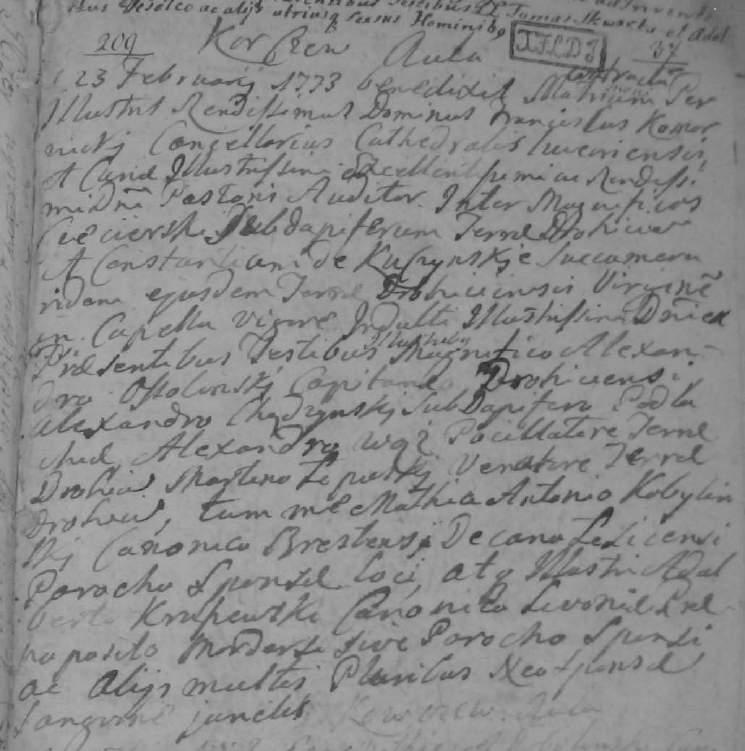 ac alijs utriusq sexus Hominibq Thomas Skwarka et Adal
209 Korczew Aula 37
THDJ
23 Februarij 1773 benedixit Matrium Per
contractũ
Illustris Rendissimus Dominus Franciscus Komor
nicki Cancellarius Cathedralis Luceoriensis
et Curiæ Illustrissimi Excellentissimi ac Rendissi
mi Dñi Pastoris Auditor Inter Magnificos
Ciecierski Subdapiferum Terræ Drohicen
et Constantiam de Kuczynskje Succamera
ridam ejusdem Terræ Drohiciensis Virginē
in Capella vigore Indulti Illustrissimi
Præsentibus Testibus Magnifico Alexan
dro Ossolinskj Capitaneo Drohiciensi
Alexandro Chądzynskj SubDapifero Podla
chiæ Alexandro Wąż Pocillatore Terræ
Drohicen Martino Lepieskj Venatore Terræ
Drohicen, tum me Mathia Antonio Kobylin
skj Canonico Brestensi Decano Losicensi
Parocho Sponsæ loci, atq Illustri Adal
berto Krupewski Canonico Livoniæ Præ
posito sive Parocho Sponsi
ac alijs multis Pluribus Neosponsæ
sanguine junctis Korczew Aula